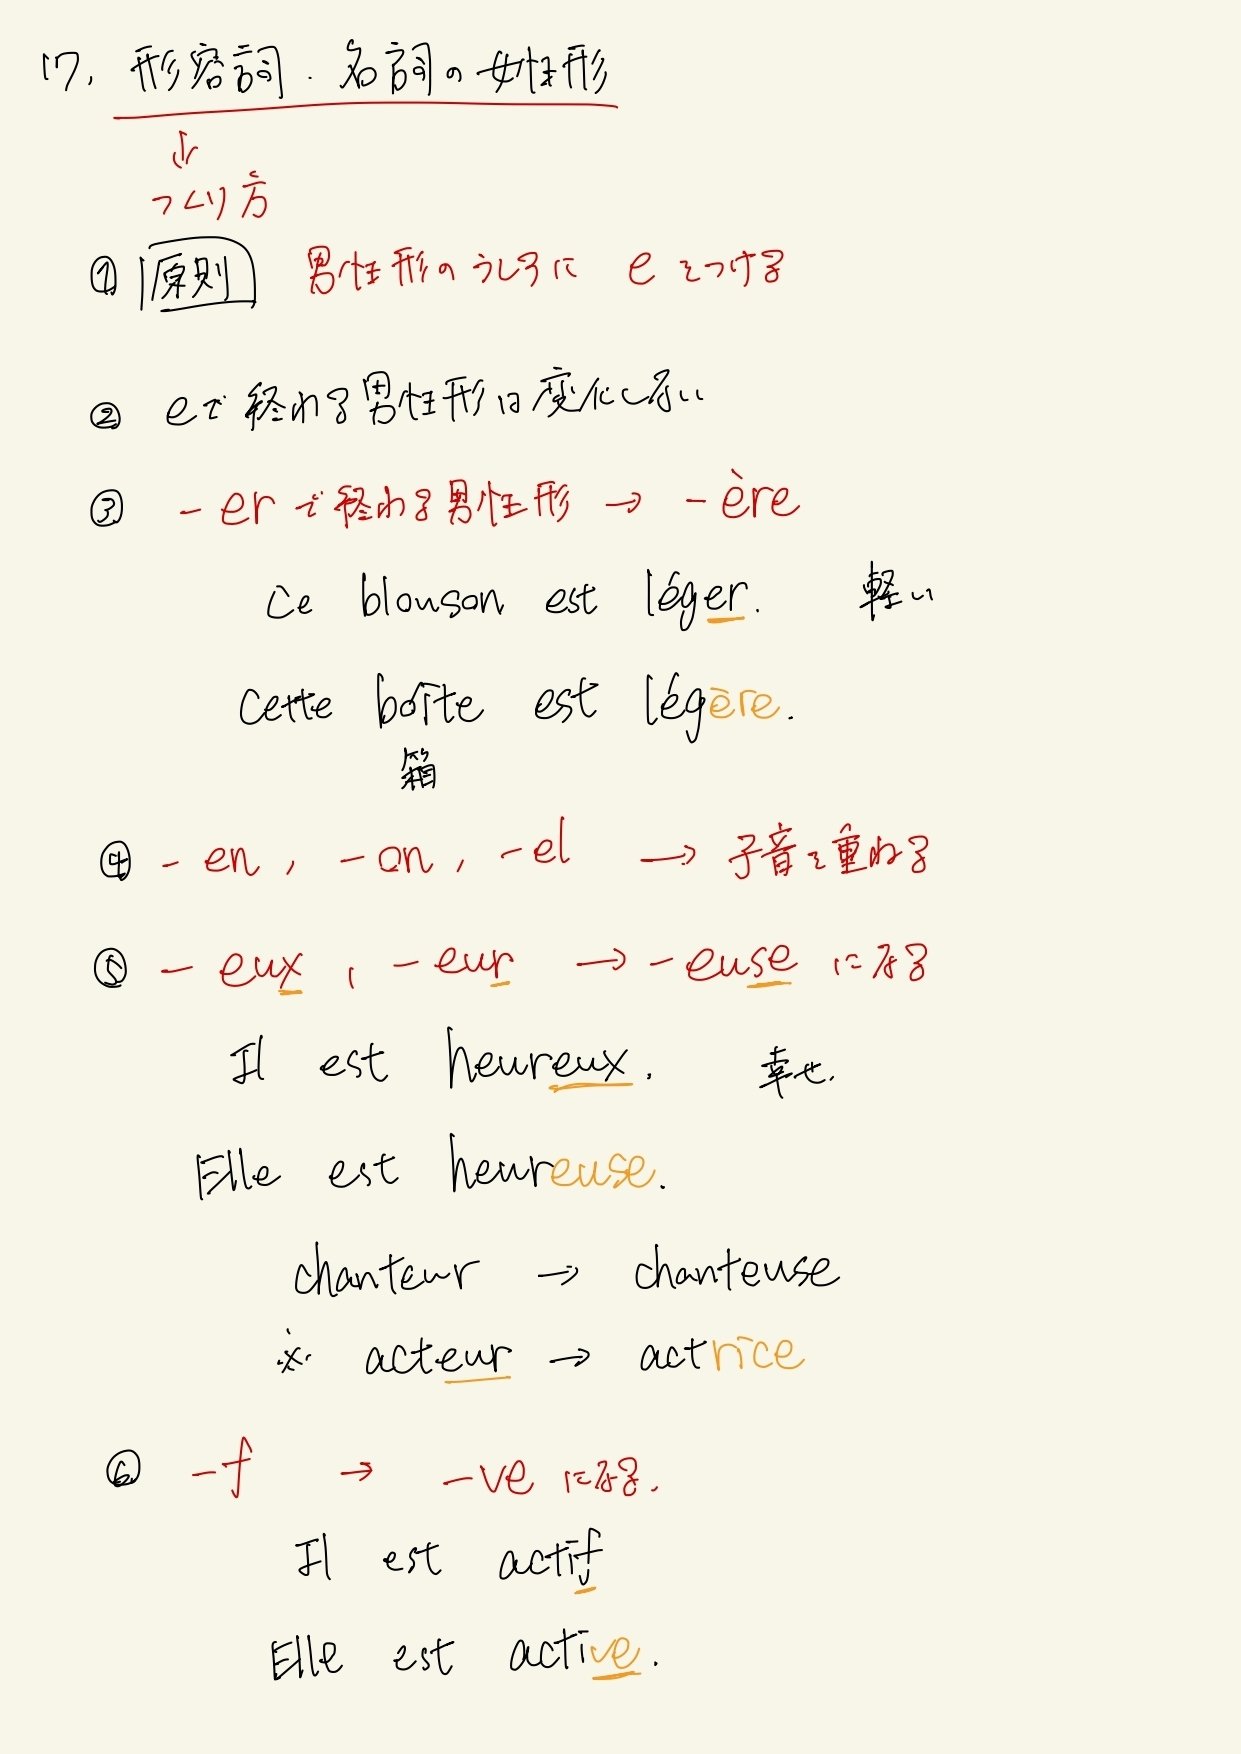 17. 形容詞・名詞の女性形
つくり方
① 原則 男性形のうしろに e をつける
② eで終わる男性形は変化しない
③ -erで終わる男性形 → -ère
Ce blouson est léger. 軽い
Cette boîte est légère.
箱
④ -en, -on, -el → 子音を重ねる
⑤ -eux, -eur → -euse になる
Il est heureux. 幸せ.
Elle est heureuse.
chanteur → chanteuse
※ acteur → actrice
⑥ -f → -ve になる.
Il est actif
Elle est active.